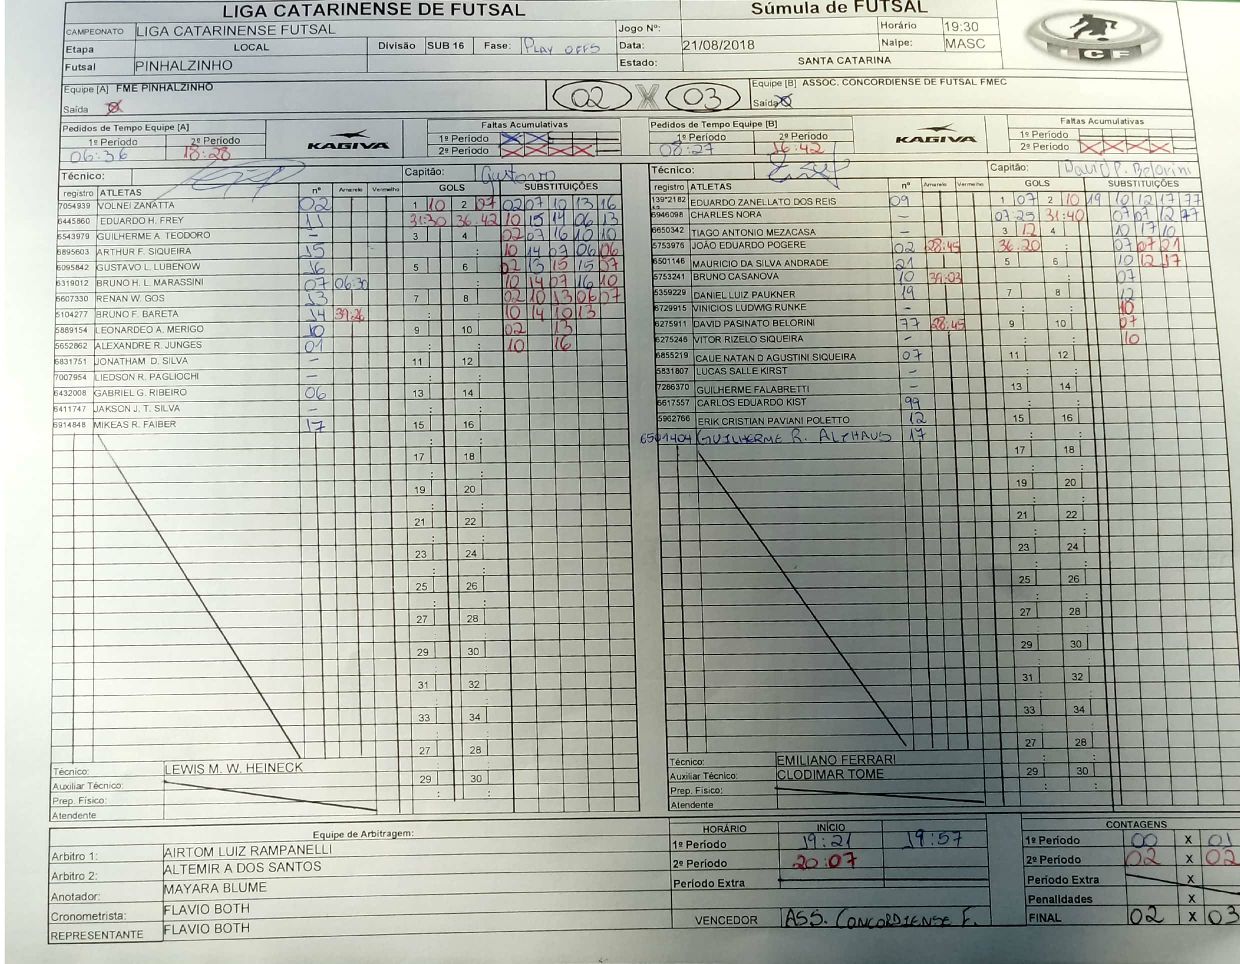 LIGA CATARINENSE DE FUTSAL Súmula de FUTSAL
CAMPEONATO LIGA CATARINENSE FUTSAL Jogo Nº: Horário 19:30
Etapa LOCAL Divisão SUB 16 Fase: PLAY OFFS Data: 21/08/2018 Naipe: MASC
Futsal PINHALZINHO Estado: SANTA CATARINA
LCF
Equipe [A] FME PINHALZINHO 02 X 03 Equipe [B] ASSOC. CONCORDIENSE DE FUTSAL FMEC
Saída Saída
Pedidos de Tempo Equipe [A] Faltas Acumulativas Pedidos de Tempo Equipe [B] Faltas Acumulativas
1º Período 2º Período KAGIVA 1º Período 1º Período 2º Período KAGIVA 1º Período
06:36 18:28 2º Período 08:27 16:42 2º Período
Técnico: Capitão: Gustavo Técnico: Capitão: David P. Belorini
registro ATLETAS nº Amarelo Vermelho GOLS SUBSTITUIÇÕES registro ATLETAS nº Amarelo Vermelho GOLS SUBSTITUIÇÕES
7054939 VOLNEI ZANATTA 02 1 10 2 07 02 07 10 13 16 139*2182 EDUARDO ZANELLATO DOS REIS 09 1 07 2 10 19 10 12 17 77
6445860 EDUARDO H. FREY 11 31:30 36:42 10 15 14 06 13 6946098 CHARLES NORA - 07:25 31:40 07 07 12 77
6543979 GUILHERME A. TEODORO - 3 4 02 07 16 10 10 6650342 TIAGO ANTONIO MEZACASA - 3 12 4 10 17 10
6895603 ARTHUR F. SIQUEIRA 15 10 14 07 06 06 5753976 JOÃO EDUARDO POGERE 02 28:45 36:20 07 07 21
6095842 GUSTAVO L. LUBENOW 16 5 6 02 13 15 15 07 6501146 MAURICIO DA SILVA ANDRADE 21 5 6 10 12 17
6319012 BRUNO H. L. MARASSINI 07 06:30 10 14 07 16 10 5753241 BRUNO CASANOVA 10 39:03 07
6607330 RENAN W. GOS 13 7 8 02 10 13 06 07 5359229 DANIEL LUIZ PAUKNER 19 7 8 12
5104277 BRUNO F. BARETA 14 39:26 10 14 10 13 6729915 VINICIOS LUDWIG RUNKE - 10
5889154 LEONARDEO A. MERIGO 10 9 10 02 13 6275911 DAVID PASINATO BELORINI 77 28:45 9 10 07
5652862 ALEXANDRE R. JUNGES 01 10 16 6275246 VITOR RIZELO SIQUEIRA - 10
6831751 JONATHAM D. SILVA - 11 12 6855219 CAUE NATAN D AGUSTINI SIQUEIRA 07 11 12
7007954 LIEDSON R. PAGLIOCHI - 5831807 LUCAS SALLE KIRST -
6432008 GABRIEL G. RIBEIRO 06 13 14 7286370 GUILHERME FALABRETTI - 13 14
6411747 JAKSON J. T. SILVA - 6617557 CARLOS EDUARDO KIST 99
6914848 MIKEAS R. FAIBER 17 15 16 5962766 ERIK CRISTIAN PAVIANI POLETTO 12 15 16
6501404 GUILHERME R. ALTHAUS 17
17 18 17 18
19 20 19 20
21 22 21 22
23 24 23 24
25 26 25 26
27 28 27 28
29 30 29 30
31 32 31 32
33 34 33 34
27 28 27 28
Técnico: LEWIS M. W. HEINECK 29 30 Técnico: EMILIANO FERRARI 29 30
Auxiliar Técnico: Auxiliar Técnico: CLODIMAR TOME
Prep. Físico: Prep. Físico:
Atendente Atendente
Equipe de Arbitragem: HORÁRIO INÍCIO CONTAGENS
Arbitro 1: AIRTOM LUIZ RAMPANELLI 1º Período 19:21 19:57 1º Período 00 X 01
Arbitro 2: ALTEMIR A DOS SANTOS 2º Período 20:07 2º Período 02 X 02
Anotador: MAYARA BLUME Período Extra Período Extra X
Cronometrista: FLAVIO BOTH Penalidades X
REPRESENTANTE FLAVIO BOTH VENCEDOR ASS. CONCORDIENSE F. FINAL 02 X 03